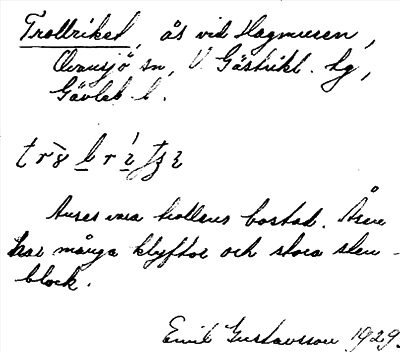 Trollriket, ås vid Hagmuren,
Ovansjö sn, V. Gästrikl. hg,
Gävleb. l.
Anses vara trollens bostad. Åsen
har många klyftor och stora sten-
block.
Emil Gustavsson 1929.